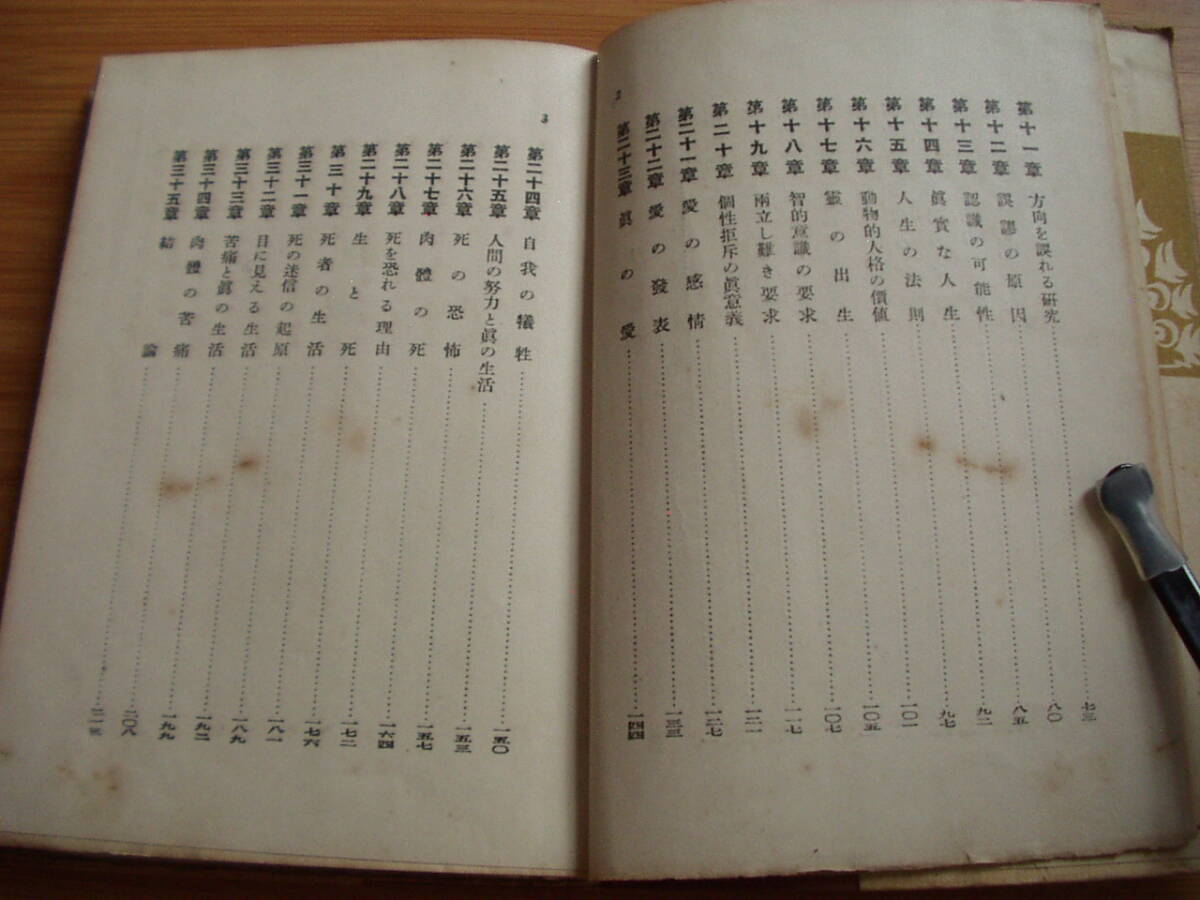 2
第十一章 方向を誤れる研究 七三
第十二章 誤謬の原因 八〇
第十三章 認識の可能性 八五
第十四章 眞實な人生 九二
第十五章 人生の法則 九七
第十六章 動物的人格の價値 一〇一
第十七章 靈の出生 一〇五
第十八章 智的意識の要求 一〇七
第十九章 兩立し難き要求 一一七
第二十章 個性拒斥の眞意義 一二一
第二十一章 愛の感情 一二七
第二十二章 愛の發表 一三三
第二十三章 眞の愛 一四四
3
第二十四章 自我の犠牲 一五〇
第二十五章 人間の努力と眞の生活 一五三
第二十六章 死の恐怖 一五七
第二十七章 肉體の死 一六四
第二十八章 死を恐れる理由 一七二
第二十九章 生と死 一七六
第三十章 死者の生活 一八一
第三十一章 死の迷信の起原 一八九
第三十二章 目に見える生活 一九二
第三十三章 苦痛と眞の生活 一九九
第三十四章 肉體の苦痛 二〇八
第三十五章 結論 二一五